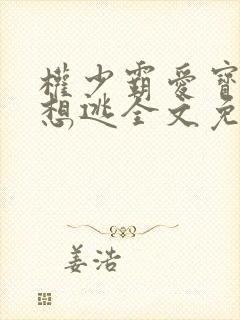 權少霸愛寶
想逃全文免
姜浩